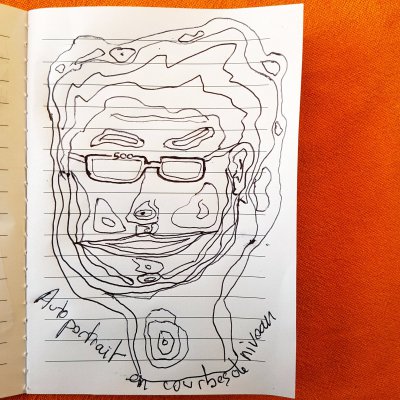 500
Auto
portrait
en courbes de niveau